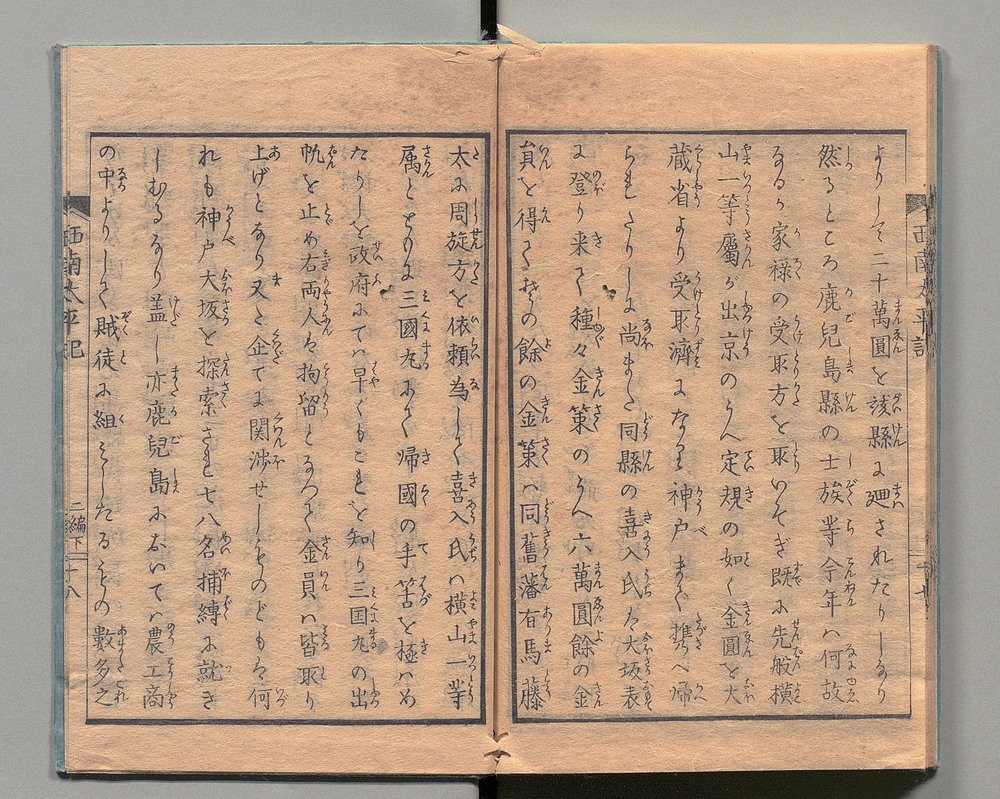 よりして二十萬圓を該縣に廻されたりしなり
然るところ鹿兒島縣の士族等今年ハ何故
なるか家禄の受取方を取いそぎ既に先般横
山一等屬が出京のうへ定規の如く金圓を大
蔵省より受取濟になりて神戸まで携へ帰
られたりしに尚また同縣の喜入氏も大坂表
に登り来て種々金策のうへ六萬圓餘の金
員を得てその餘の金策ハ同舊藩有馬藤
太に周旋方を依頼為して喜入氏ハ横山一等
属とともに三國丸にて帰國の手筈を極はめ
たりしを政府にてハ早くもこれを知り三国丸の出
帆を止め右両人を拘留となして金員ハ皆取り
上げとなり又た企てに関渉せしものどもは何
れも神戸大坂を探索され七八名捕縛に就き
しむるなり蓋し亦鹿兒島においてハ農工商
の中よりして賊徒に組みしたるもの數多之
西南太平記
二編下
二十八